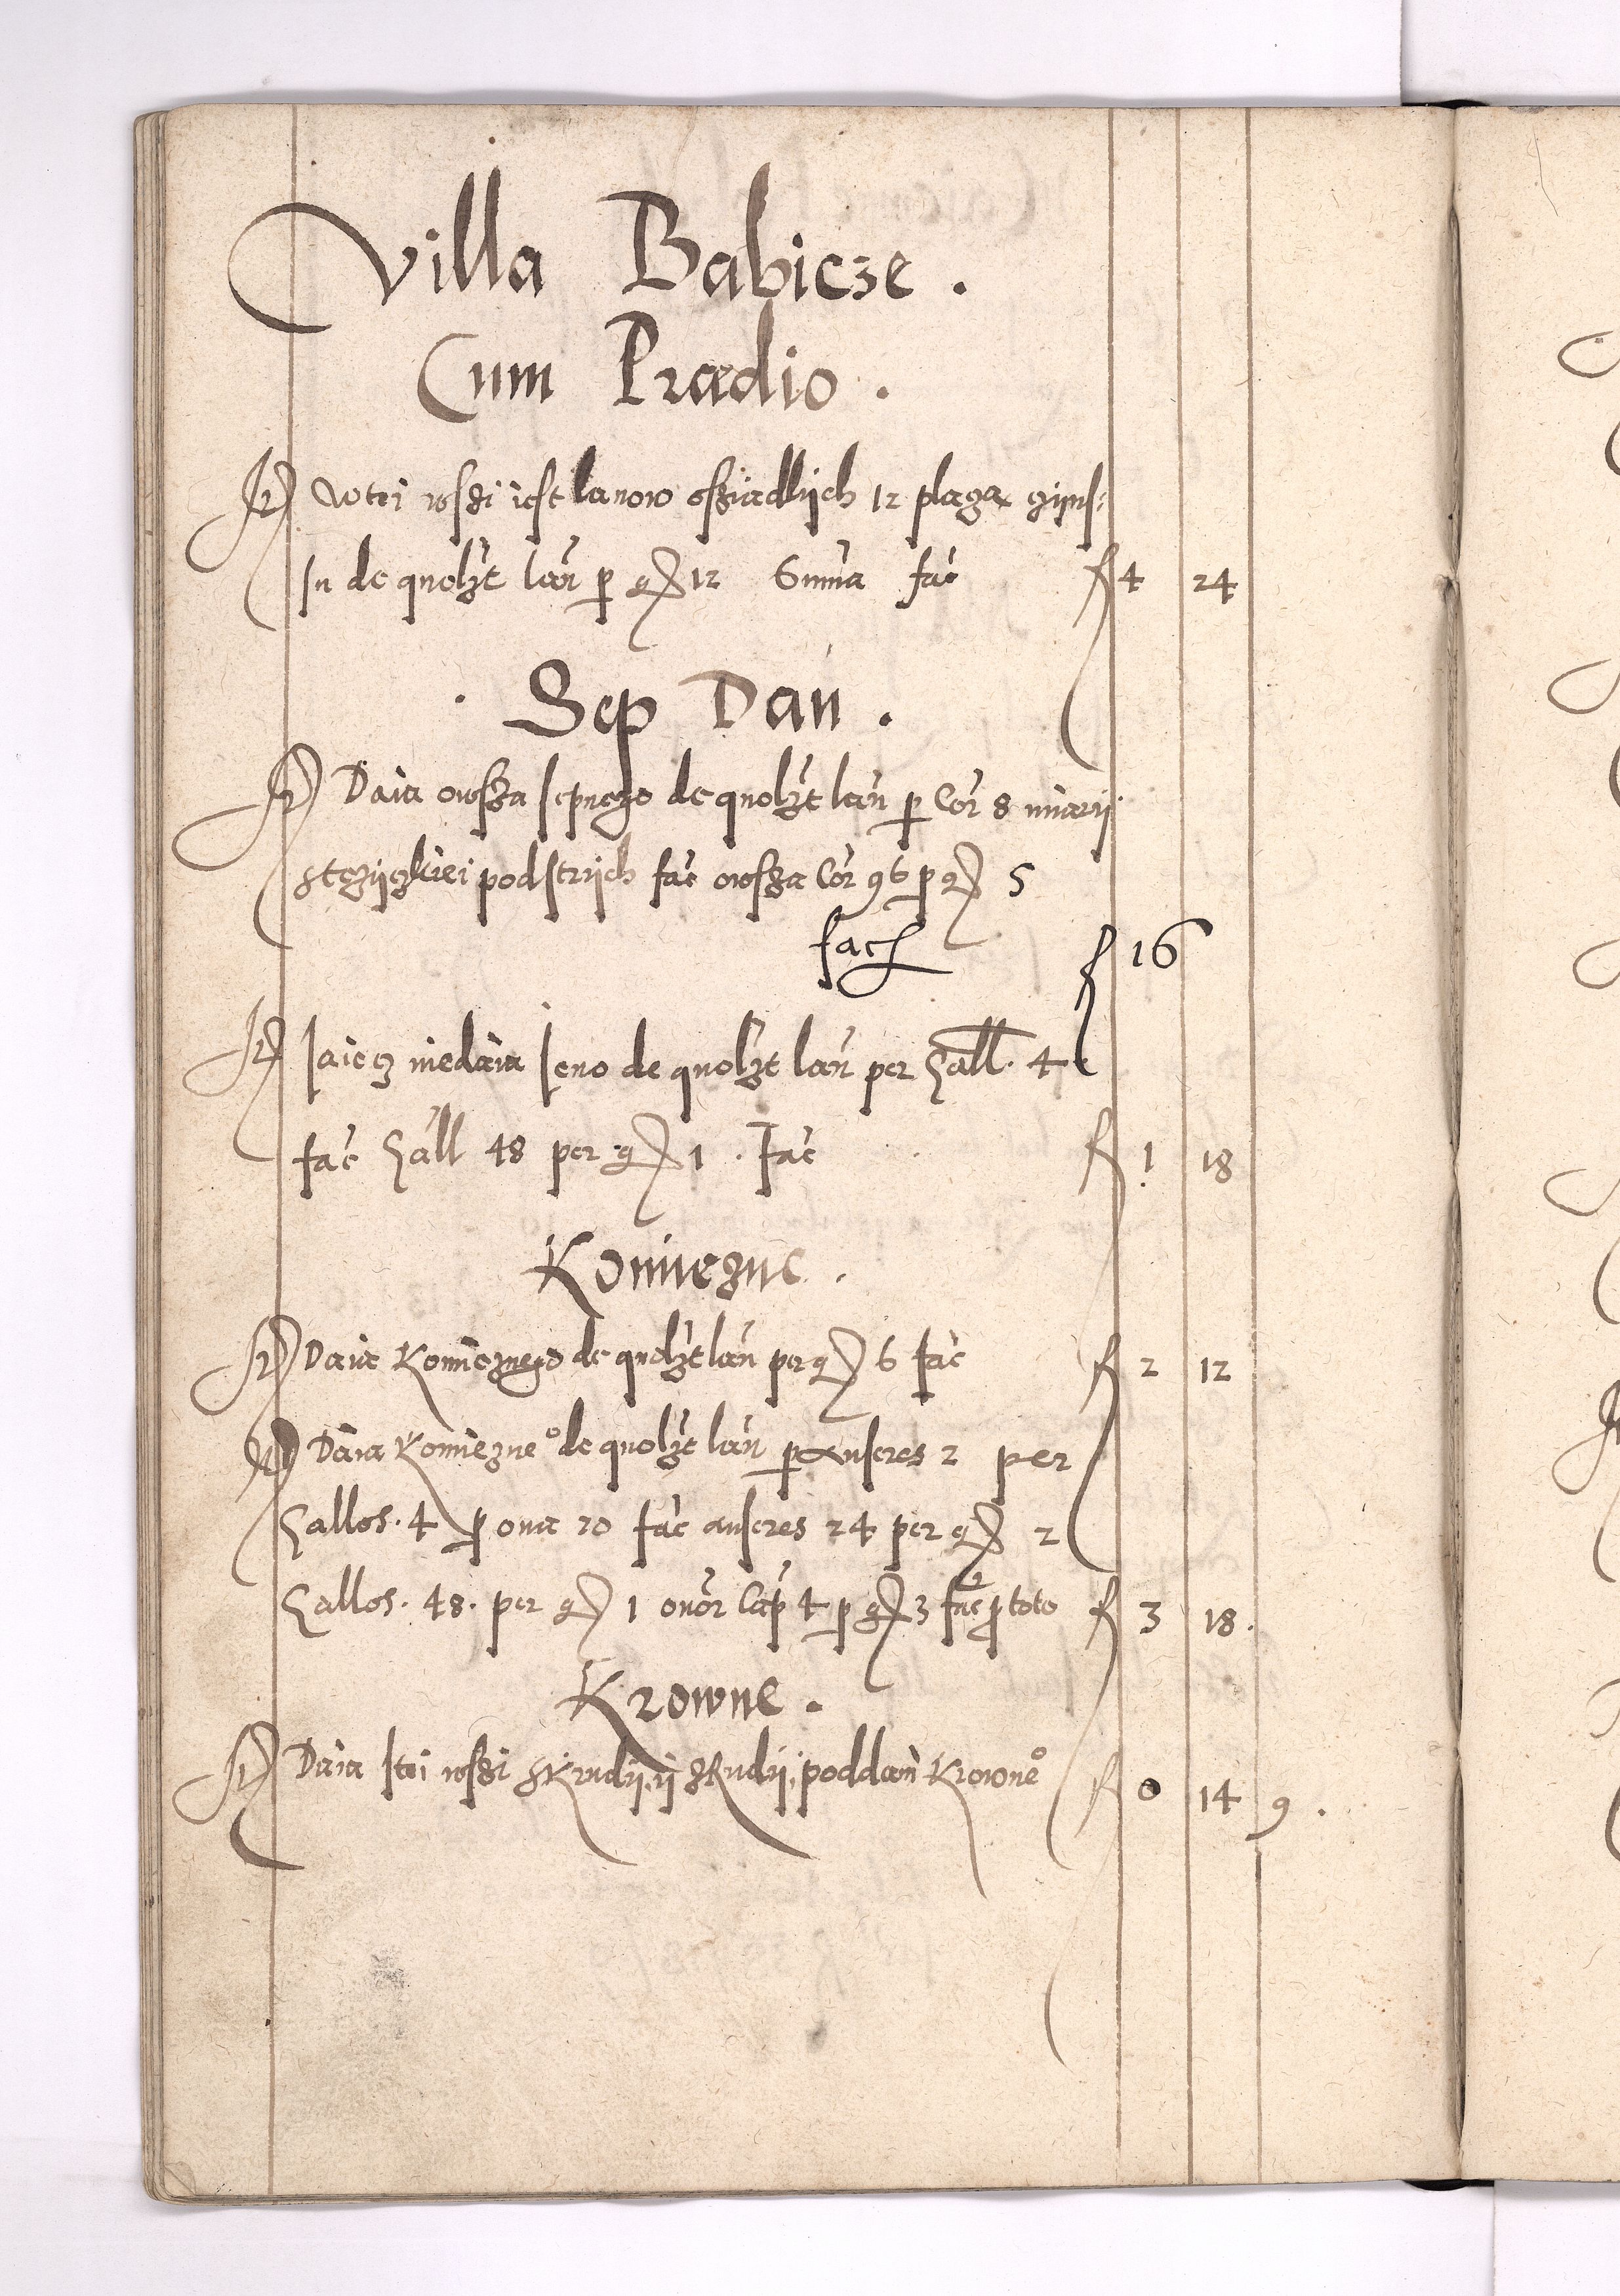 Villa Babicze .
Cum Prædio .
It) W tei wsszi iest lanow osziadlÿch 12 placza czÿns:
su de quolzt lan p gʒ 12 Summa fac f 4 24
. Sep Dan .
It) Daia owssa sepnego de quolzt lan p Cor 8 miarÿ
stęzÿczkiei podstrÿch fac owssa Cor 96 p gʒ 5
fac f 16
It) Iaiecz niedaia Ieno de quolzt lan per Gall. 4
fac Gall 48 per gʒ 1 . Fac f 1 18
Koniiezne .
It) Daia Konieznego de quolzt lan per gʒ 6 fac f 2 12
It) Daia Konięzneº de quolzt lan p anseres 2 per
Gallos. 4 p oua 20 fac anseres 24 per gʒ 2
Gallos. 48. per gʒ 1 ouor Cap 4 p gʒ 3 fac p toto f 3 18.
Krowne .
It) Daia stei wsszi ÿ poddani Krowneº f 0 14 9 .